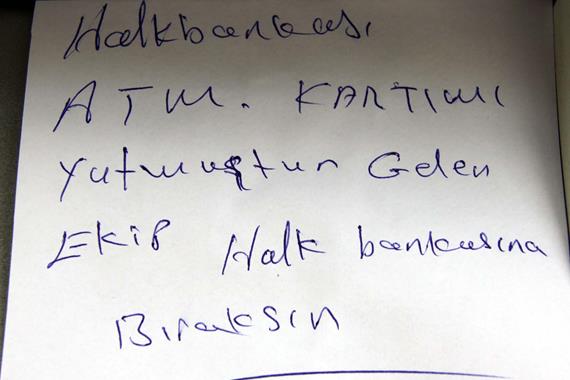 Halkbankası
ATM. KARTIMI
yutmuştur Gelen
EKİP Halk bankasına
Bıraksın